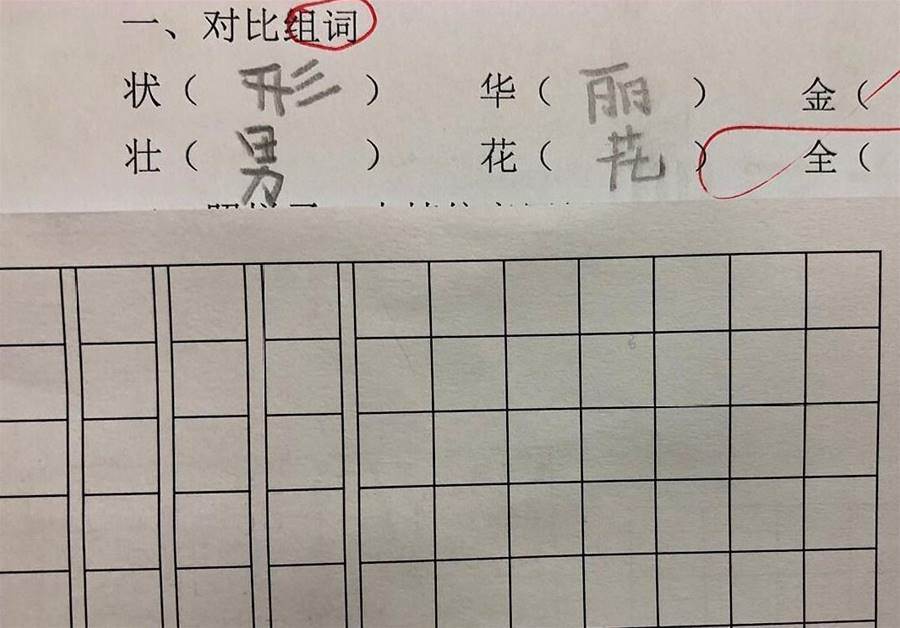 一、对比组词
状（ 形 ） 华（ 丽 ） 金（
壮（ 男 ） 花（ 花 ） 全（